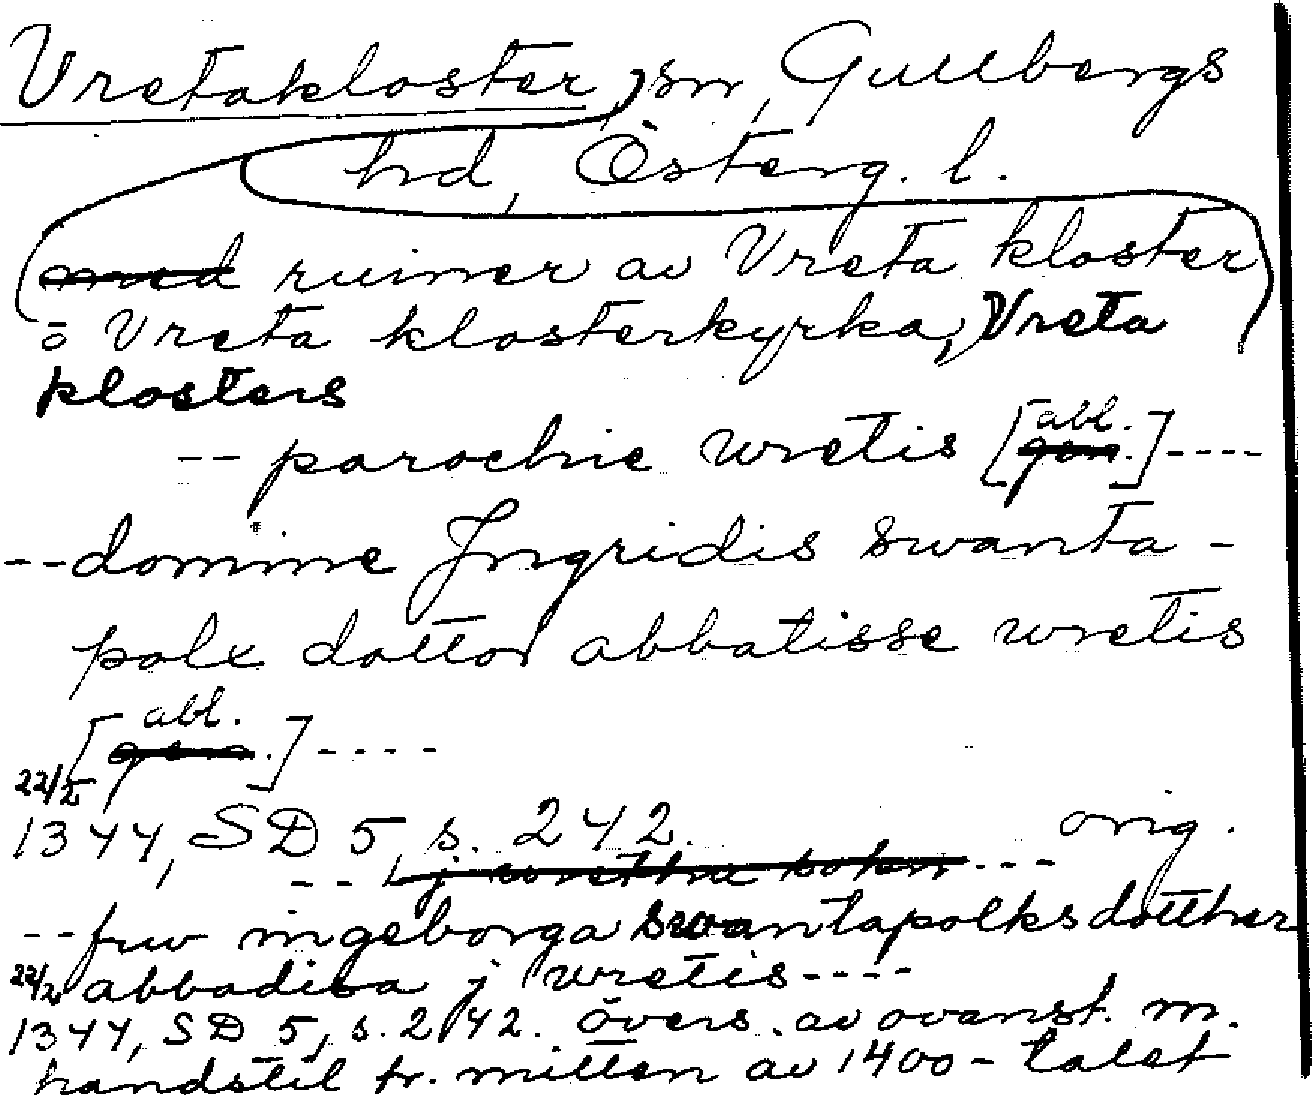 Vretakloster, sn, Gullbergs
hd, Österg. l.
ruiner av Vreta kloster
o Vreta klosterkyrka, Vreta
klosters
-- parochie wretis [abl.]----
--domine Jngridis swanta-
polx dottor abbatisse wretis
[abl.]----
22/2
1344, SD 5, s. 242. orig.
-- j wrettha boken ---
--frw ingeborga swantapolksdotther
22/2 abbadisa j wretis----
1344, SD 5, s. 242. övers. av ovanst. m.
handstil fr. mitten av 1400-talet